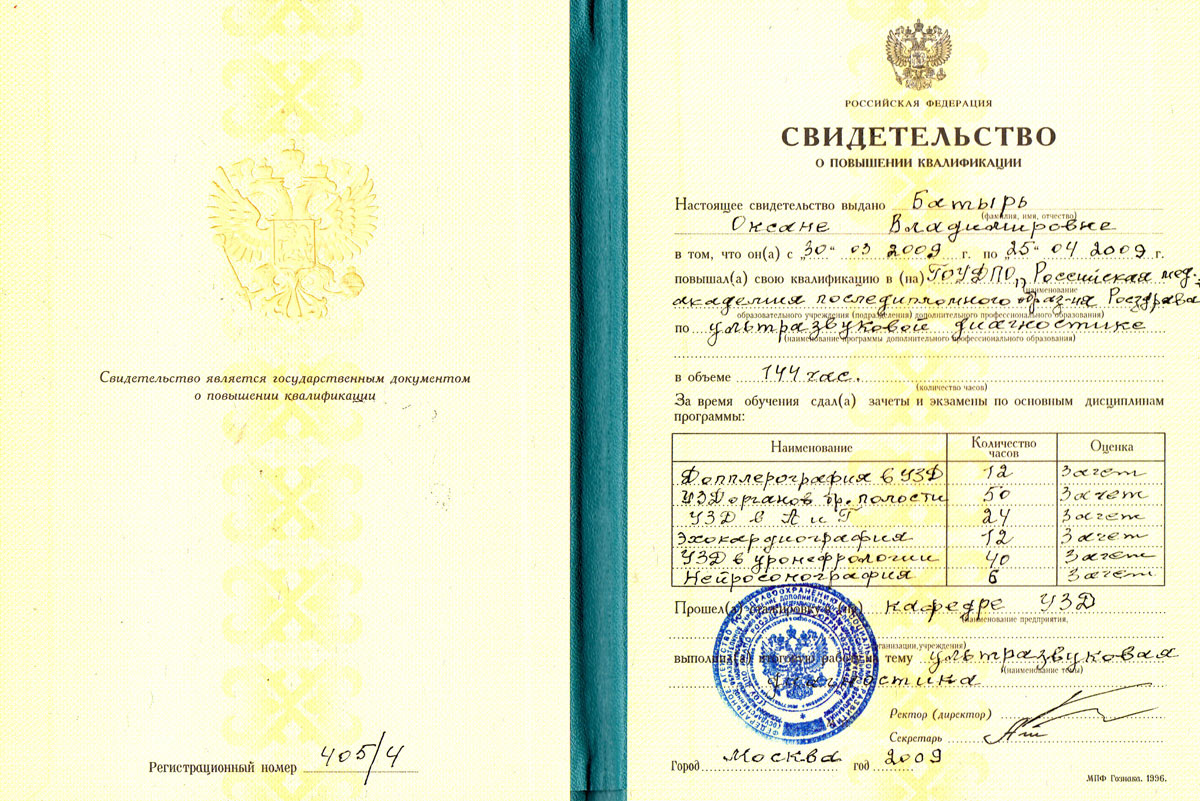 Свидетельство является государственным документом
о повышении квалификации
Регистрационный номер 405/4
РОССИЙСКАЯ ФЕДЕРАЦИЯ
СВИДЕТЕЛЬСТВО
О ПОВЫШЕНИИ КВАЛИФИКАЦИИ
Настоящее свидетельство выдано Батырь
(фамилия, имя, отчество)
Оксане Владимировне
в том, что он(а) с „30" 03 2009 г. по „25" 04 2009 г.
повышал(а) свою квалификацию в (на) ГОУДПО „Российская мед.
(наименование
академия последипломного образ-ия Росздрава
образовательного учреждения (подразделения) дополнительного профессионального образования)
по ультразвуковой диагностике
(наименование программы дополнительного профессионального образования)
в объеме 144 час.
(количество часов)
За время обучения сдал(а) зачеты и экзамены по основным дисциплинам
программы:
Наименование Количество часов Оценка
Допплерография в УЗД 12 Зачет
УЗД органов бр. полости 50 Зачет
УЗД в А и Г 24 Зачет
Эхокардиография 12 Зачет
УЗД в уронефрологии 40 Зачет
Нейросонография 6 Зачет
Прошел(а) стажировку в (на) кафедре УЗД
(наименование предприятия,
организации, учреждения)
выполнил(а) итоговую работу на тему ультразвуковая
(наименование темы)
диагностика
Ректор (директор)
Секретарь
Город Москва год 2009
МПФ Гознака. 1996.